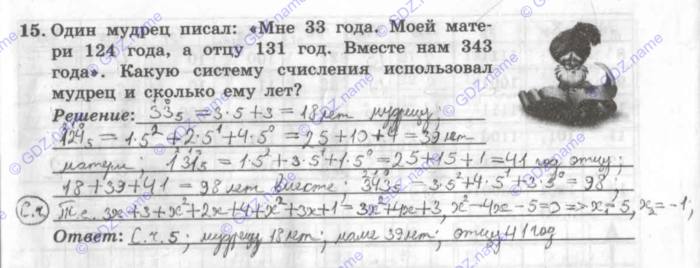 15. Один мудрец писал: «Мне 33 года. Моей мате-
ри 124 года, а отцу 131 год. Вместе нам 343
года». Какую систему счисления использовал
мудрец и сколько ему лет?
Решение: 33₅ = 3·5+3 = 18 лет мудрецу;
124₅ = 1·5²+2·5¹+4·5⁰ = 25+10+4 = 39 лет
матери; 131₅ = 1·5²+3·5¹+1·5⁰ = 25+15+1 = 41 год отцу;
18+39+41 = 98 лет вместе; 343₅ = 3·5²+4·5¹+3·5⁰ = 98;
С.ч. Т.е. 3x+3+x²+2x+4+x²+3x+1 = 3x²+4x+3, x²-4x-5=0 => x₁=5, x₂=-1;
Ответ: С.ч. 5; мудрецу 18 лет; маме 39 лет; отцу 41 год
© GDZ.name